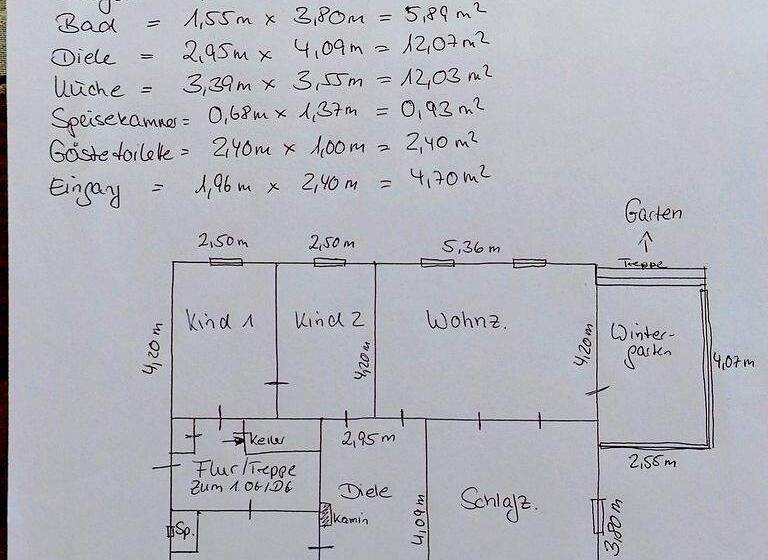 Bad = 1,55m x 3,80m = 5,89 m²
Diele = 2,95m x 4,09m = 12,07 m²
Küche = 3,39m x 3,55m = 12,03 m²
Speisekammer = 0,68m x 1,37m = 0,93 m²
Gästetoilette = 2,40m x 1,00m = 2,40 m²
Eingang = 1,96m x 2,40m = 4,70 m²
Garten
Treppe
2,50m 2,50m 5,36m
Kind 1 Kind 2 Wohnz. Winter-
garten
4,20m 4,20m 4,20m 4,07m
Keller 2,95m
2,55m
Flur/Treppe
zum 1.OG/DG
Diele Schlafz.
Kamin
Sp. 4,09m 3,80m